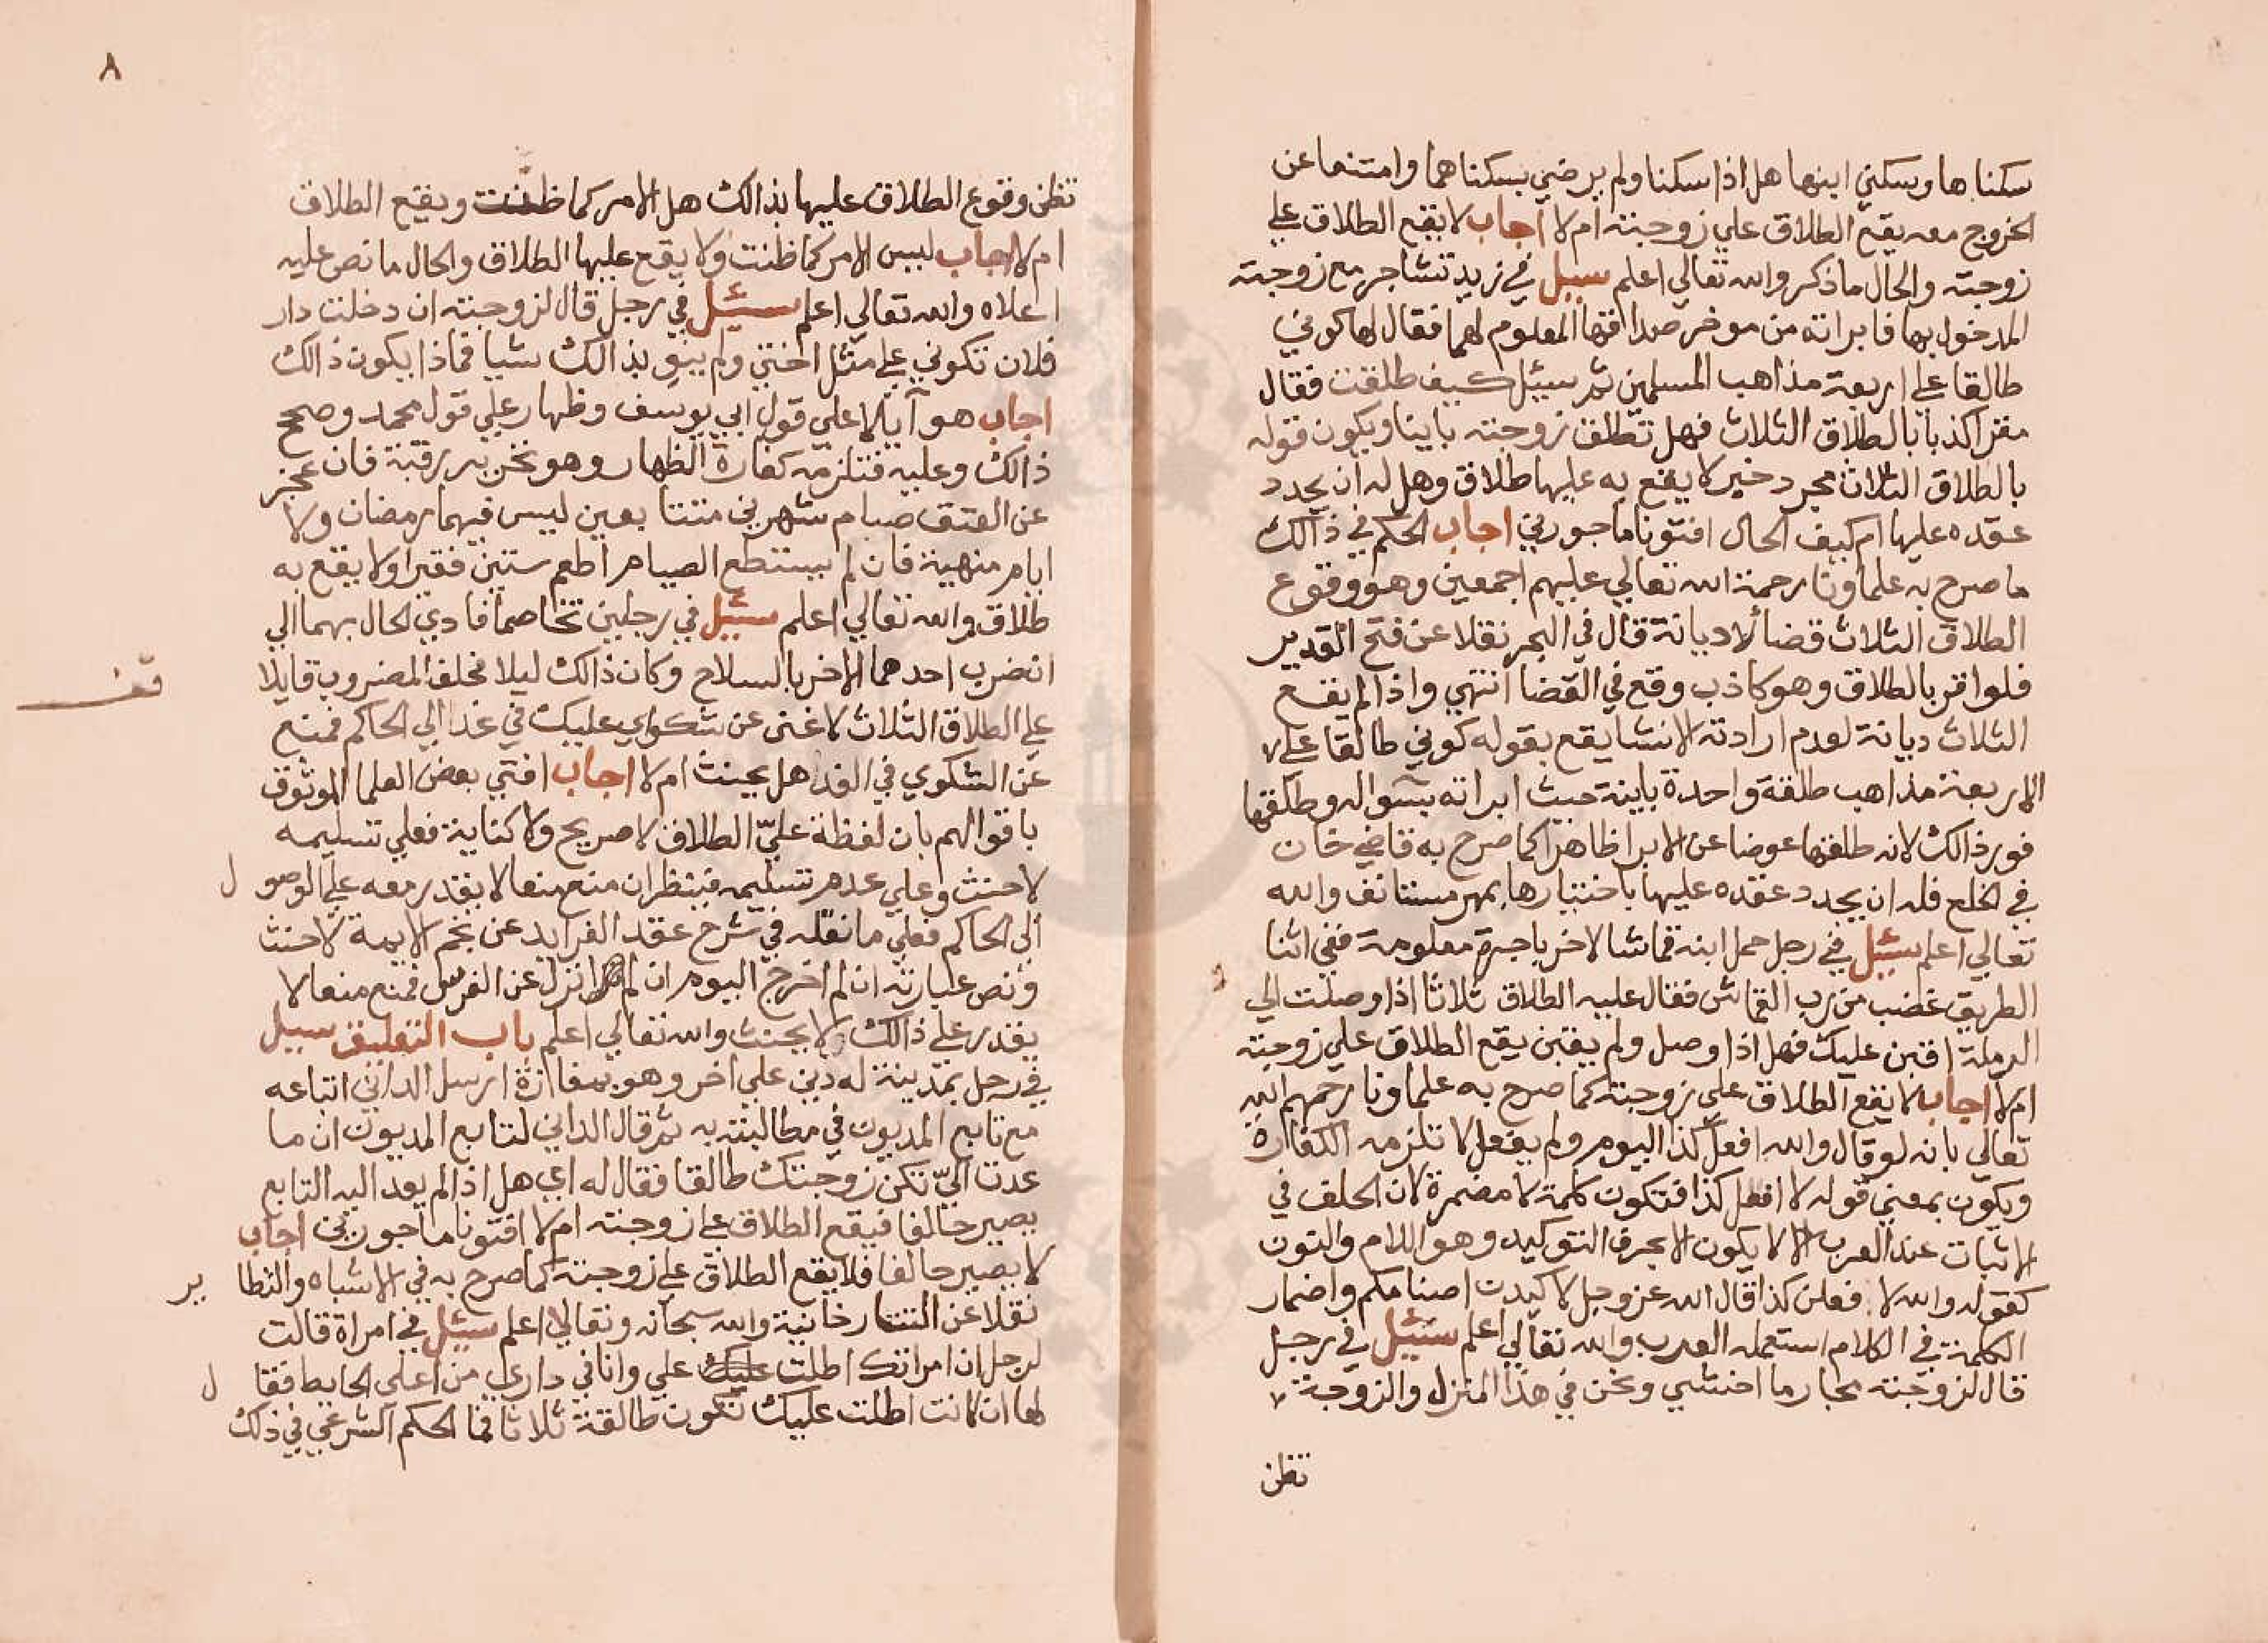 سكناها وسكني ابنها هل اذا سكنا ولم يرضي بسكناهما وامتنعا عن
الخروج معه يقع الطلاق علي زوجته ام لا اجاب لا يقع الطلاق علي
زوجته والحال ما ذكر والله تعالي اعلم سيل في زيد تشاجر مع زوجته
المدخول بها فابراته من موخر صداقها المعلوم لهما فقال لها كوني
طالقا علي اربعة مذاهب المسلمين ثم سيئل كيف طلقت فقال
مقرا كذبا بالطلاق الثلاث فهل تطلق زوجته باينا ويكون قوله
بالطلاق الثلاث مجرد خبر لا يقع به عليها طلاق وهل له ان يجدد
عقده عليها ام كيف الحال افتونا ماجورين اجاب الحكم في ذالك
ما صرح به علماونا رحمة الله تعالي عليهم اجمعين وهو وقوع
الطلاق الثلاث قضأ لا ديانة قال في البحر نقلا عن فتح القدير
فلو اقر بالطلاق وهو كاذب وقع في القضا انتهي واذا لم يقع
الثلاث ديانة لعدم ارادته الانشا يقع بقوله كوني طالقا علي
الاربعة مذاهب طلقة واحدة باينة حيث ابراته بسواله وطلقها
فور ذالك لانه طلقها عوضا عن الابرا ظاهرا كما صرح به قاضي خان
في الخلع فله ان يجدد عقده عليها باختيارها بمهر مستانف والله
تعالي اعلم سيئل في رجل حمل ابنه قماشا لاخر باجرة معلومة ففي اثنا
الطريق غضب من رب القماش فقال عليه الطلاق ثلاثا اذا وصلت الي
الرملة اقبن عليك فهل اذا وصل ولم يقبن يقع الطلاق علي زوجته
ام لا اجاب لا يقع الطلاق علي زوجته كما صرح به علماونا رحمهم الله
تعالي بانه لو قال والله افعل كذا اليوم ولم يفعل لا تلزمه الكفارة
ويكون بمعني قوله لا افعل كذا فتكون كلمة لا مضمرة لان الحلف في
الاثبات عند العرب لا يكون الا بحرف التوكيد وهو اللام والنون
كقوله والله لا فعلن كذا قال الله عز وجل لاكيدن اصنامكم واضمار
الكلمة في الكلام استعمله العرب والله تعالي اعلم سئيل في رجل
قال لزوجته محبارما اختشي ونحن في هذا المنزل والزوجة
تظن
٨
تظن وقوع الطلاق عليها بذالك هل الامر كما ظننت ويقع الطلاق
ام لا اجاب ليس الامر كما ظنت ولا يقع عليها الطلاق والحال ما نص عليه
اعلاه والله تعالي اعلم سئيل في رجل قال لزوجته ان دخلت دار
فلان تكوني علي مثل اختي ولم ينو بذالك شيا فماذا يكون ذالك
اجاب هو آيلا علي قول ابي يوسف وظهار علي قول محمد وصحح
ذالك وعليه فتلزمه كفارة الظهار وهو تحرير رقبة فان عجز
عن العتق صيام شهرين متتابعين ليس فيهما رمضان ولا
ايام منهية فان لم يستطع الصيام اطعم ستين فقيرا ولا يقع به
طلاق والله تعالي اعلم سئيل في رجلين تخاصما فادي الحال بهما الي
ان ضرب احدهما الاخر بالسلاح وكان ذالك ليلا فحلف المضروب قايلا
قف
علي الطلاق الثلاث لا غني عن شكواي عليك في غد الي الحاكم فمنع
عن الشكوي في الغد هل يحنث ام لا اجاب افتي بعض العلما الموثوق
باقوالهم بان لفظة عليّ الطلاق لا صريح ولا كناية فعلي تسليمه
لا حنث وعلي عدم تسليمه فينظر ان منع منعا لا يقدر معه علي الوصول
الي الحاكم فعلي ما نقله في شرح عقد الفرايد عن نجم الايمة لا حنث
ونص عبارته ان لم اخرج اليوم ان لم انزل عن الفرس فمنع منعا لا
يقدر علي ذالك لا يحنث والله تعالي اعلم باب التعليق سيل
في رجل بمدينة له دين علي اخر وهو بمفازة ارسل الداني اتباعه
مع تابع المديون في مطالبته به ثم قال الداني لتابع المديون ان ما
عدت اليّ تكن زوجتك طالقا فقال له اي هل اذا لم يعد اليه التابع
يصير حالفا فيقع الطلاق علي زوجته ام لا افتونا ماجورين اجاب
لا يصير حالفا فلا يقع الطلاق علي زوجته كما صرح به في الاشباه والنظاير
نقلا عن التتارخانية والله سبحانه وتعالي اعلم سئيل في امراة قالت
لرجل ان امراتك اطلت عليك علي وانا في داري من اعلي الحايط فقال
لها ان كانت اطلت عليك تكون طالقة ثلاثا فما الحكم الشرعي في ذلك